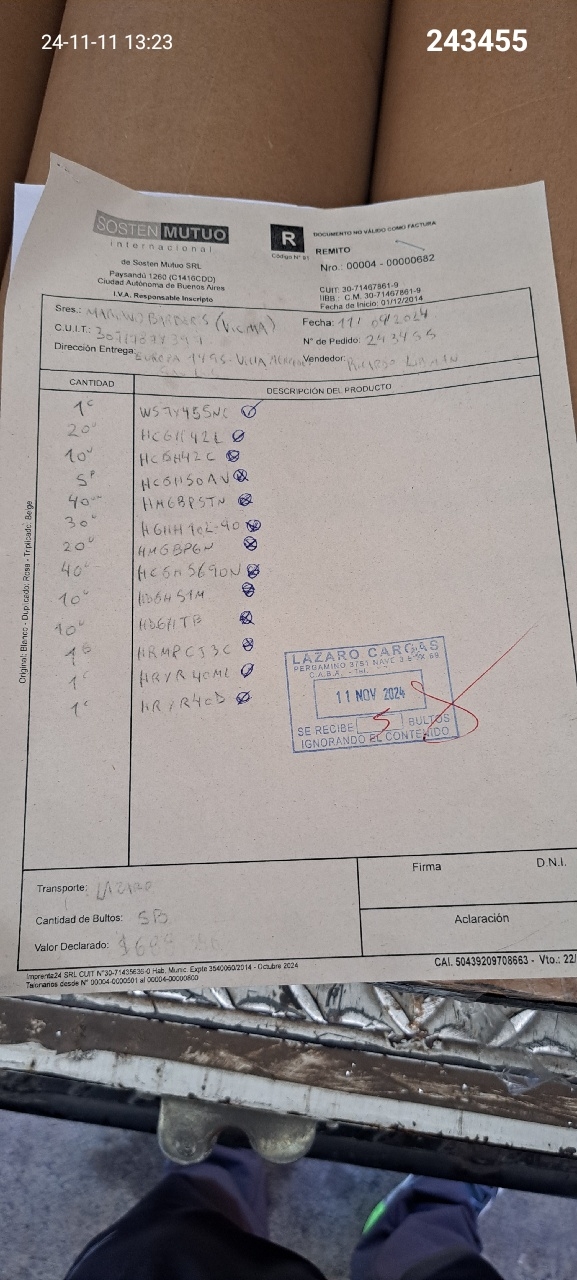 24-11-11 13:23
243455
SOSTEN MUTUO
internacional
de Sosten Mutuo SRL
Paysandú 1260 (C1416CDD)
Ciudad Autónoma de Buenos Aires
I.V.A. Responsable Inscripto
R
Código N° 91
DOCUMENTO NO VÁLIDO COMO FACTURA
REMITO
Nro.: 00004 - 00000682
CUIT: 30-71467861-9
IIBB.: C.M. 30-71467861-9
Fecha de Inicio: 01/12/2014
Sres.: (VICMA)
C.U.I.T.:
Dirección Entrega: EUROPA
Fecha: 11/
N° de Pedido: 243455
Vendedor: RICARDO
CANTIDAD DESCRIPCIÓN DEL PRODUCTO
1c WS7X455NC
20u HCGH42L
10u HCGH42C
5P HCGH50AV
40u HMGBPSTN
30u HGHH902-90
20u HMGBPGN
40u HCGHS690N
10u HDGHS1M
10u HDGHTB
1c HRMPCJ3C
1c HRYR40ML
1c HRYR40D
LAZARO CARGAS
PERGAMINO 3751 NAVE 3
C.A.B.A.
11 NOV 2024
SE RECIBE 5 BULTOS
IGNORANDO EL CONTENIDO
Original: Blanco - Duplicado: Rosa - Triplicado: Beige
Transporte: LAZARO
Cantidad de Bultos: 5B
Valor Declarado:
Firma D.N.I.
Aclaración
Imprenta24 SRL CUIT N°30-71435636-0 Hab. Munic. Expte 3540060/2014 - Octubre 2024
Talonarios desde N° 00004-00000501 al 00004-00000800
CAI. 50439209708663 - Vto.: 22/